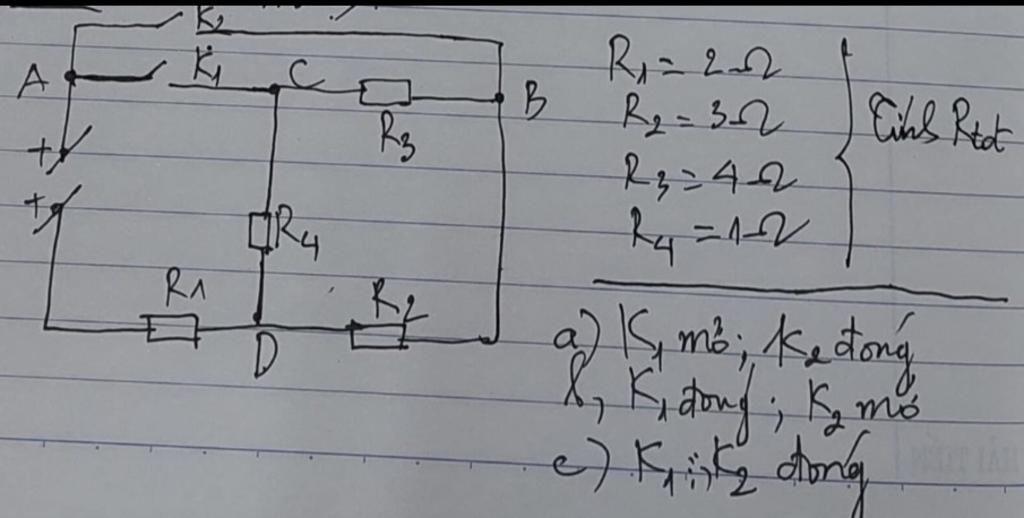 K₂
A
K₁
C
B
R₃
+
+
R₄
R₁
R₂
D
R₁ = 2Ω
R₂ = 3Ω
R₃ = 4Ω
R₄ = 1Ω
Tính Rtđ
a) K₁ mở; K₂ đóng
b, K₁ đóng; K₂ mở
c) K₁; K₂ đóng
HẢI TIẾN